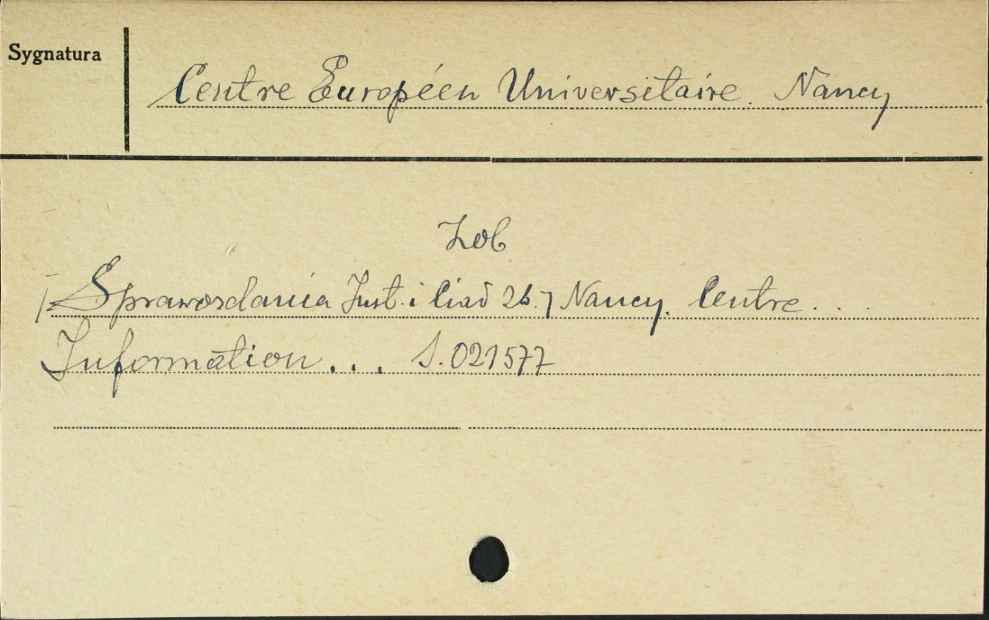 Sygnatura
Centre Européen Universitaire. Nancy
Zob
[Sprawozdania Inst. i Ciał zb.] Nancy. Centre...
Information... S.021577